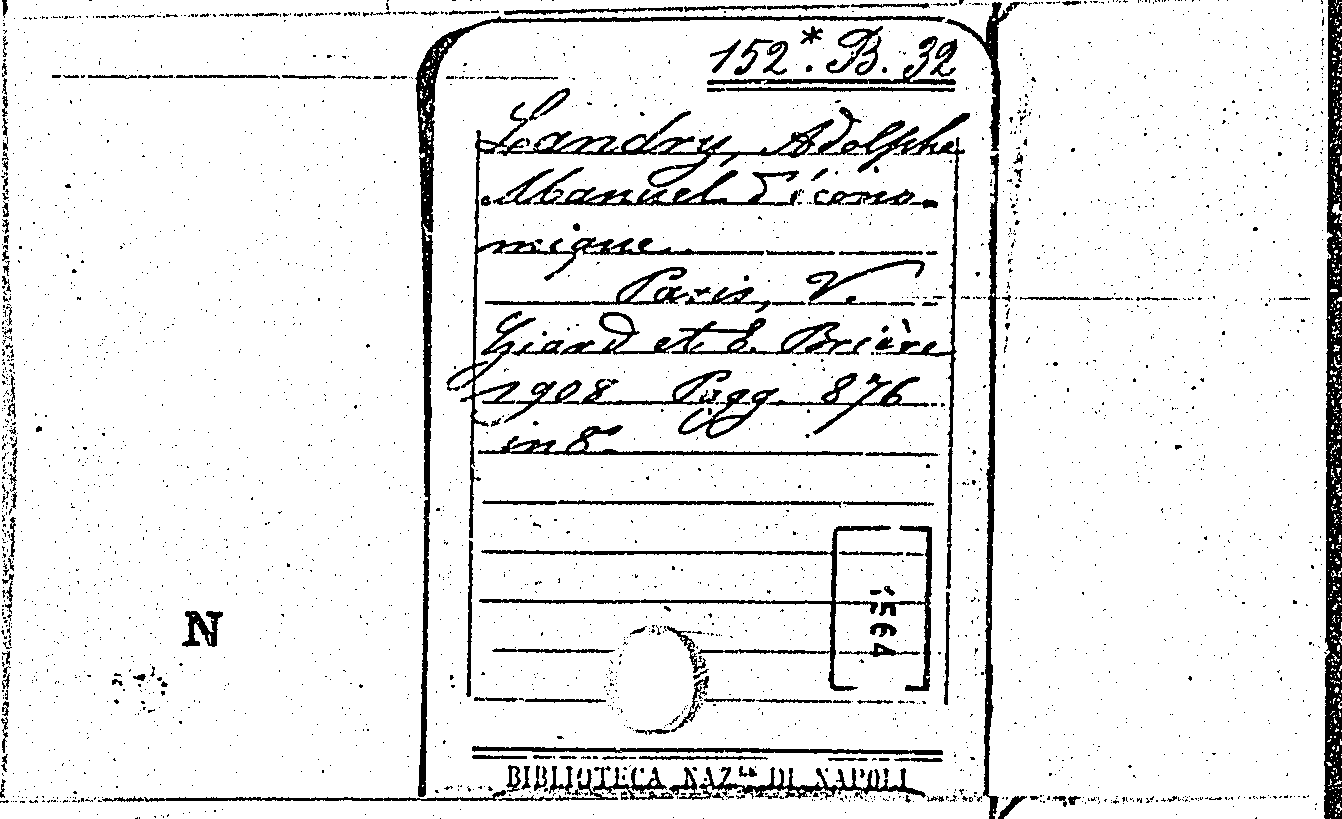 152*. B. 32
Landry, Adolphe
Manuel d'écono-
mique.
Paris, V.
Giard et E. Brière
1908 Pagg. 876
in 8º
1564
N
BIBLIOTECA NAZ.LE DI NAPOLI